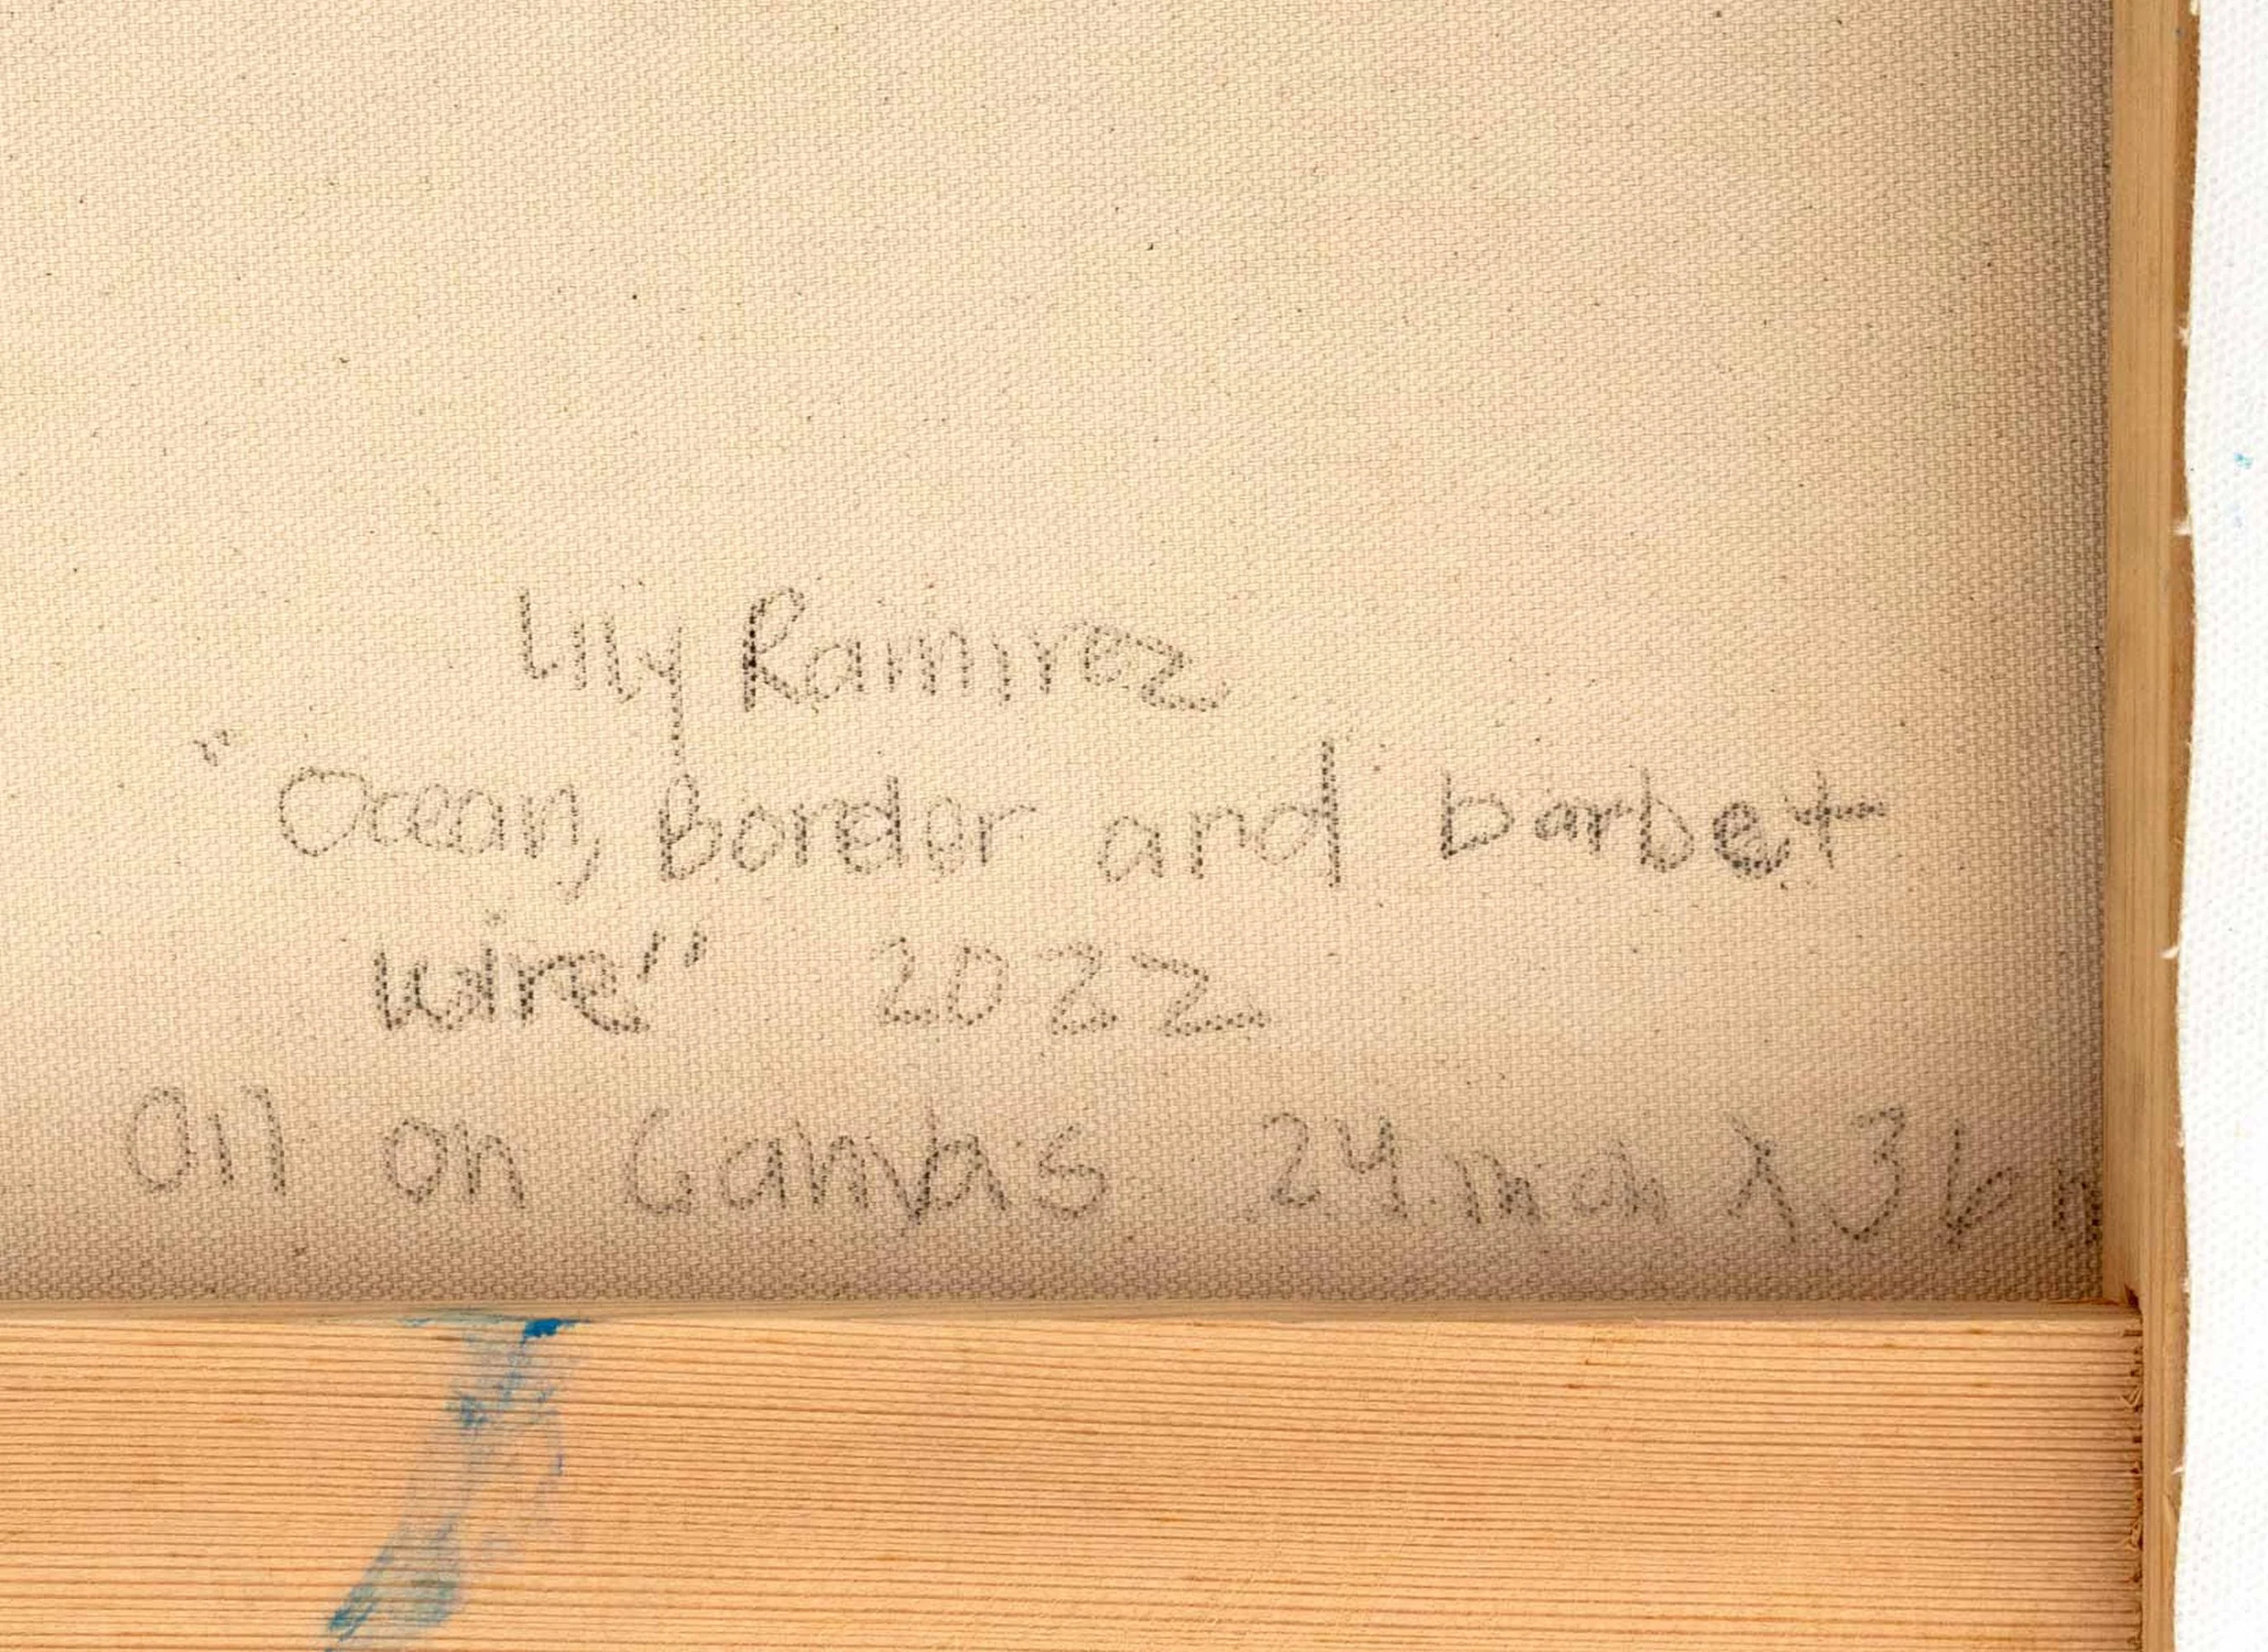 Lily Ramirez
"Ocean, border and barbet
wire" 2022
Oil on Canvas 24 inch X 36 in